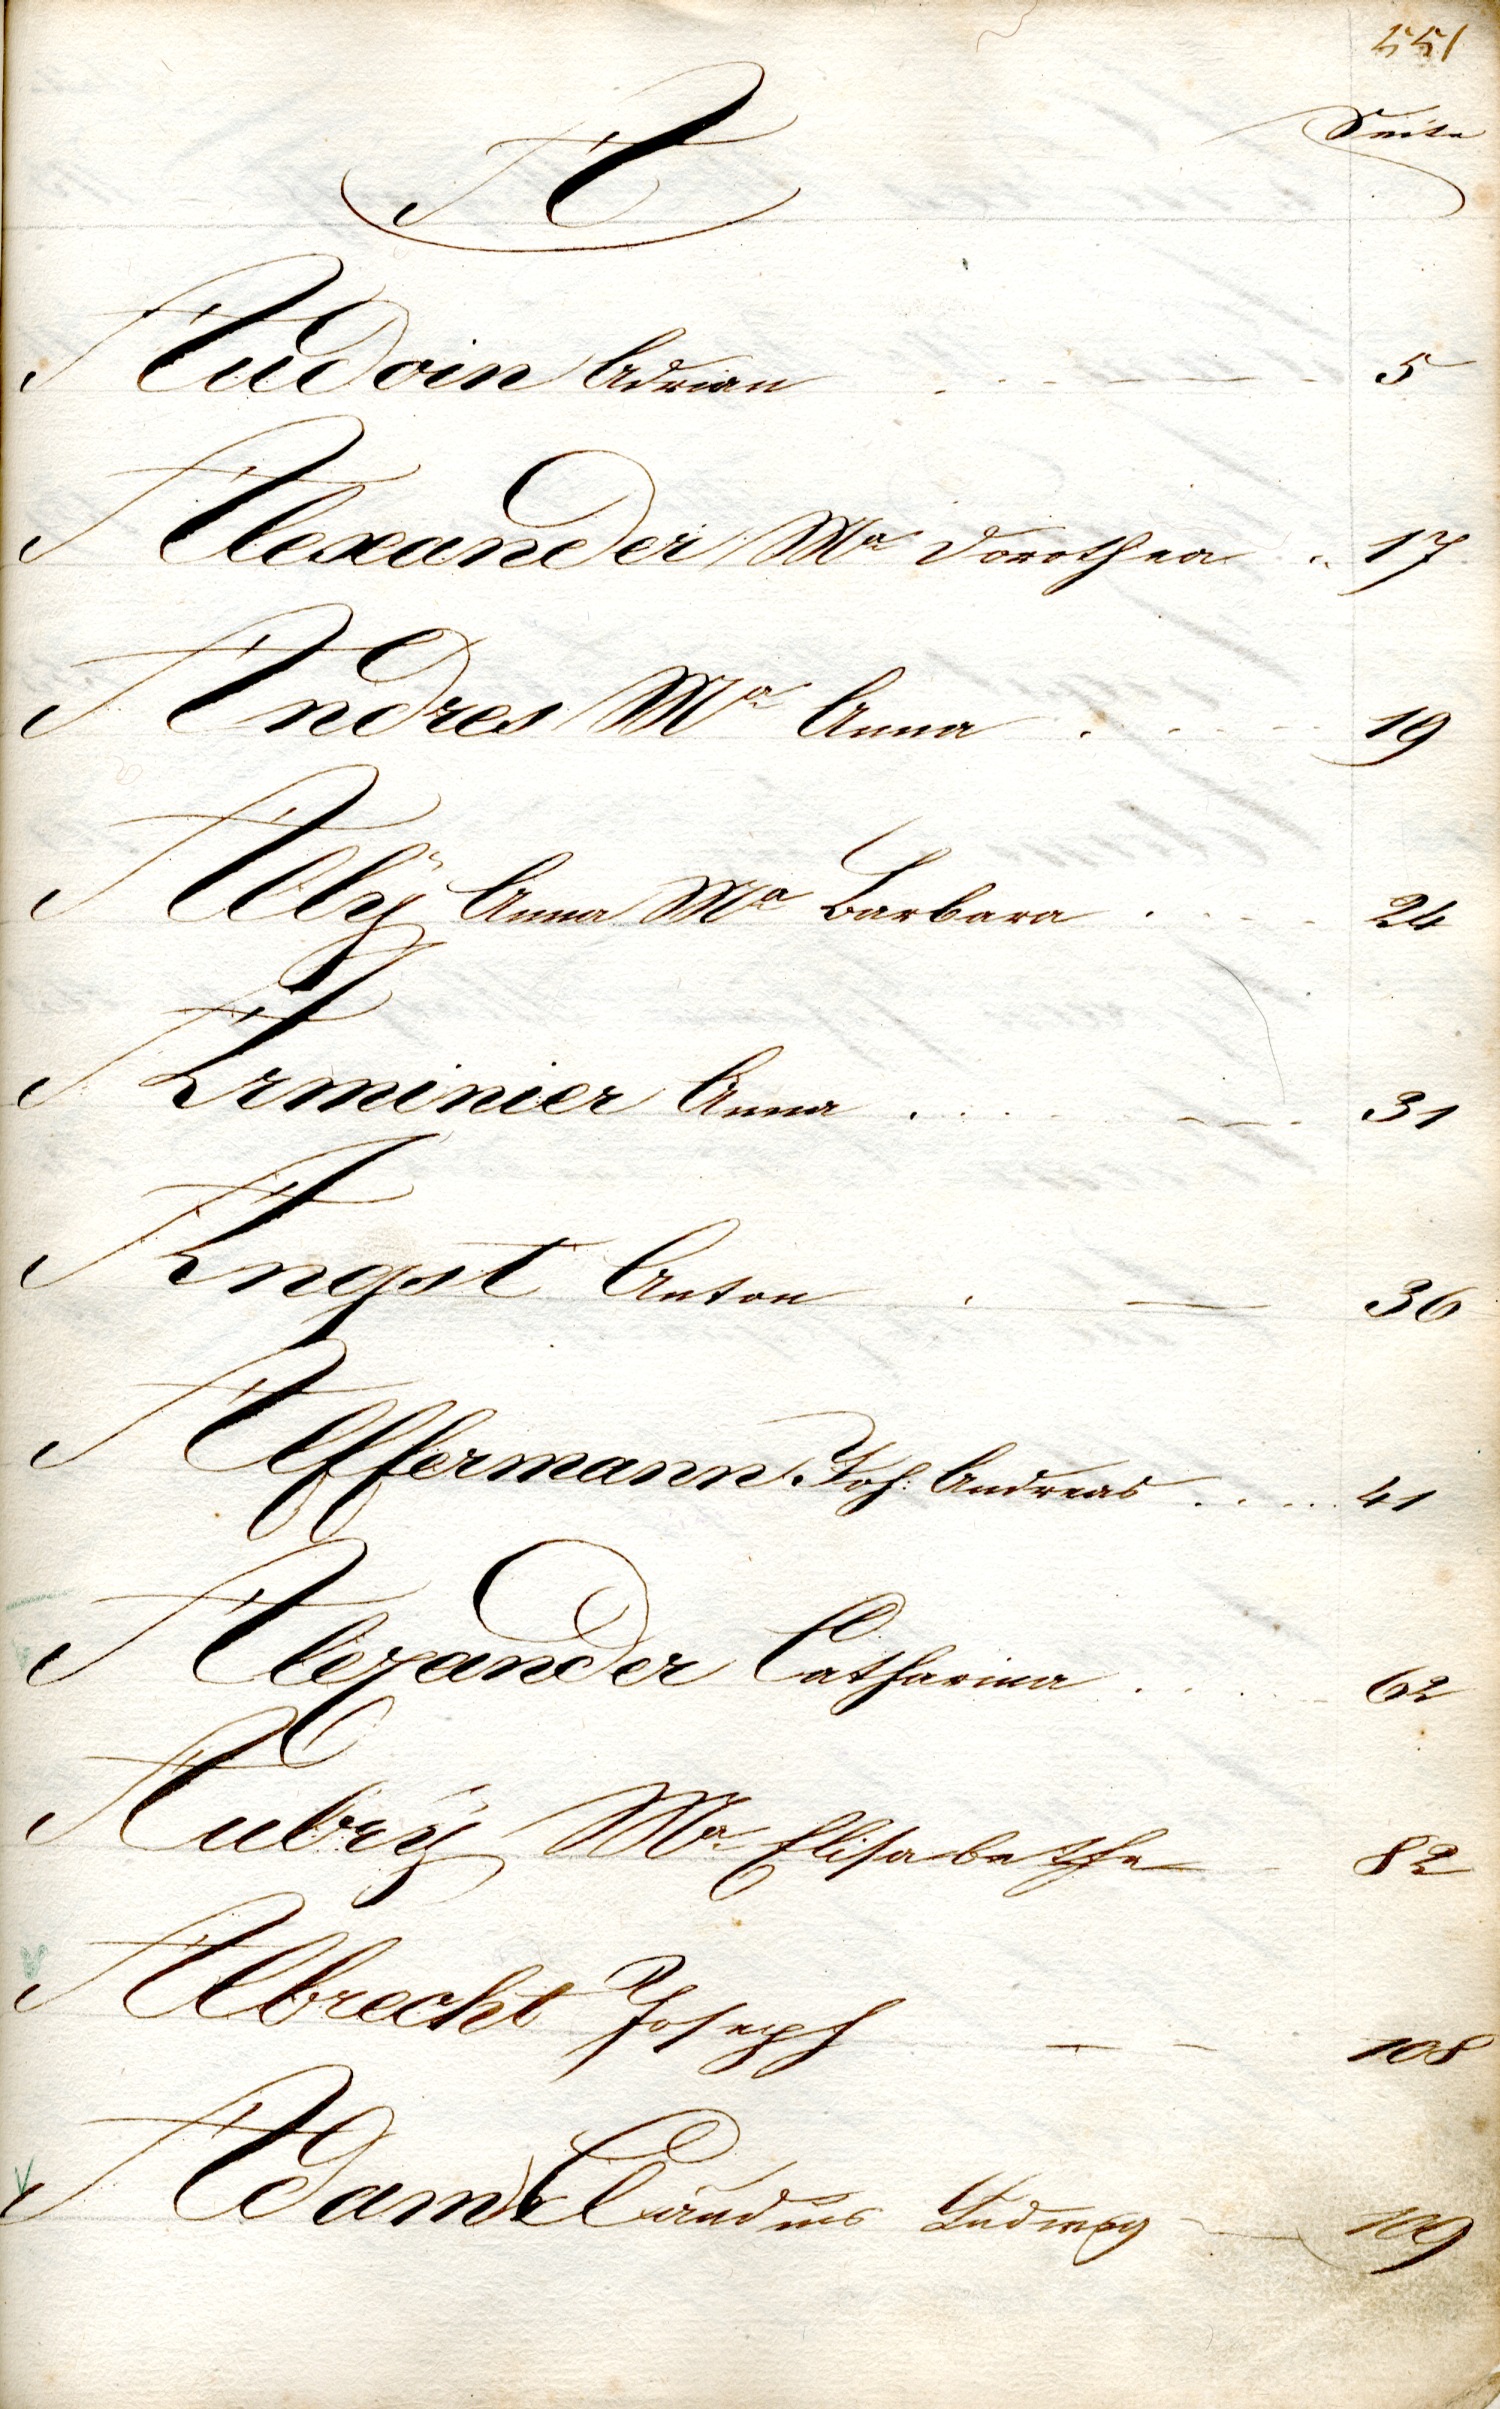 551
Seite
A
Audoin Adrian . - - - - - 5
Alexander Ma Dorothea .. 17
Andres Ma Anna . . - - - 19
Alby̎ Anna Ma Barbara . . - - - 24
Arminier Anna . . . . - - - 31
Angst Anton . — 36
Affermann Joh: Andreas . . . . . 41
Alexander Catharina . . . . - 62
Aubrÿ Ma Elisabetha - 82
Albrecht Joseph - - - 108
Adam Claudius Ludwig - 109